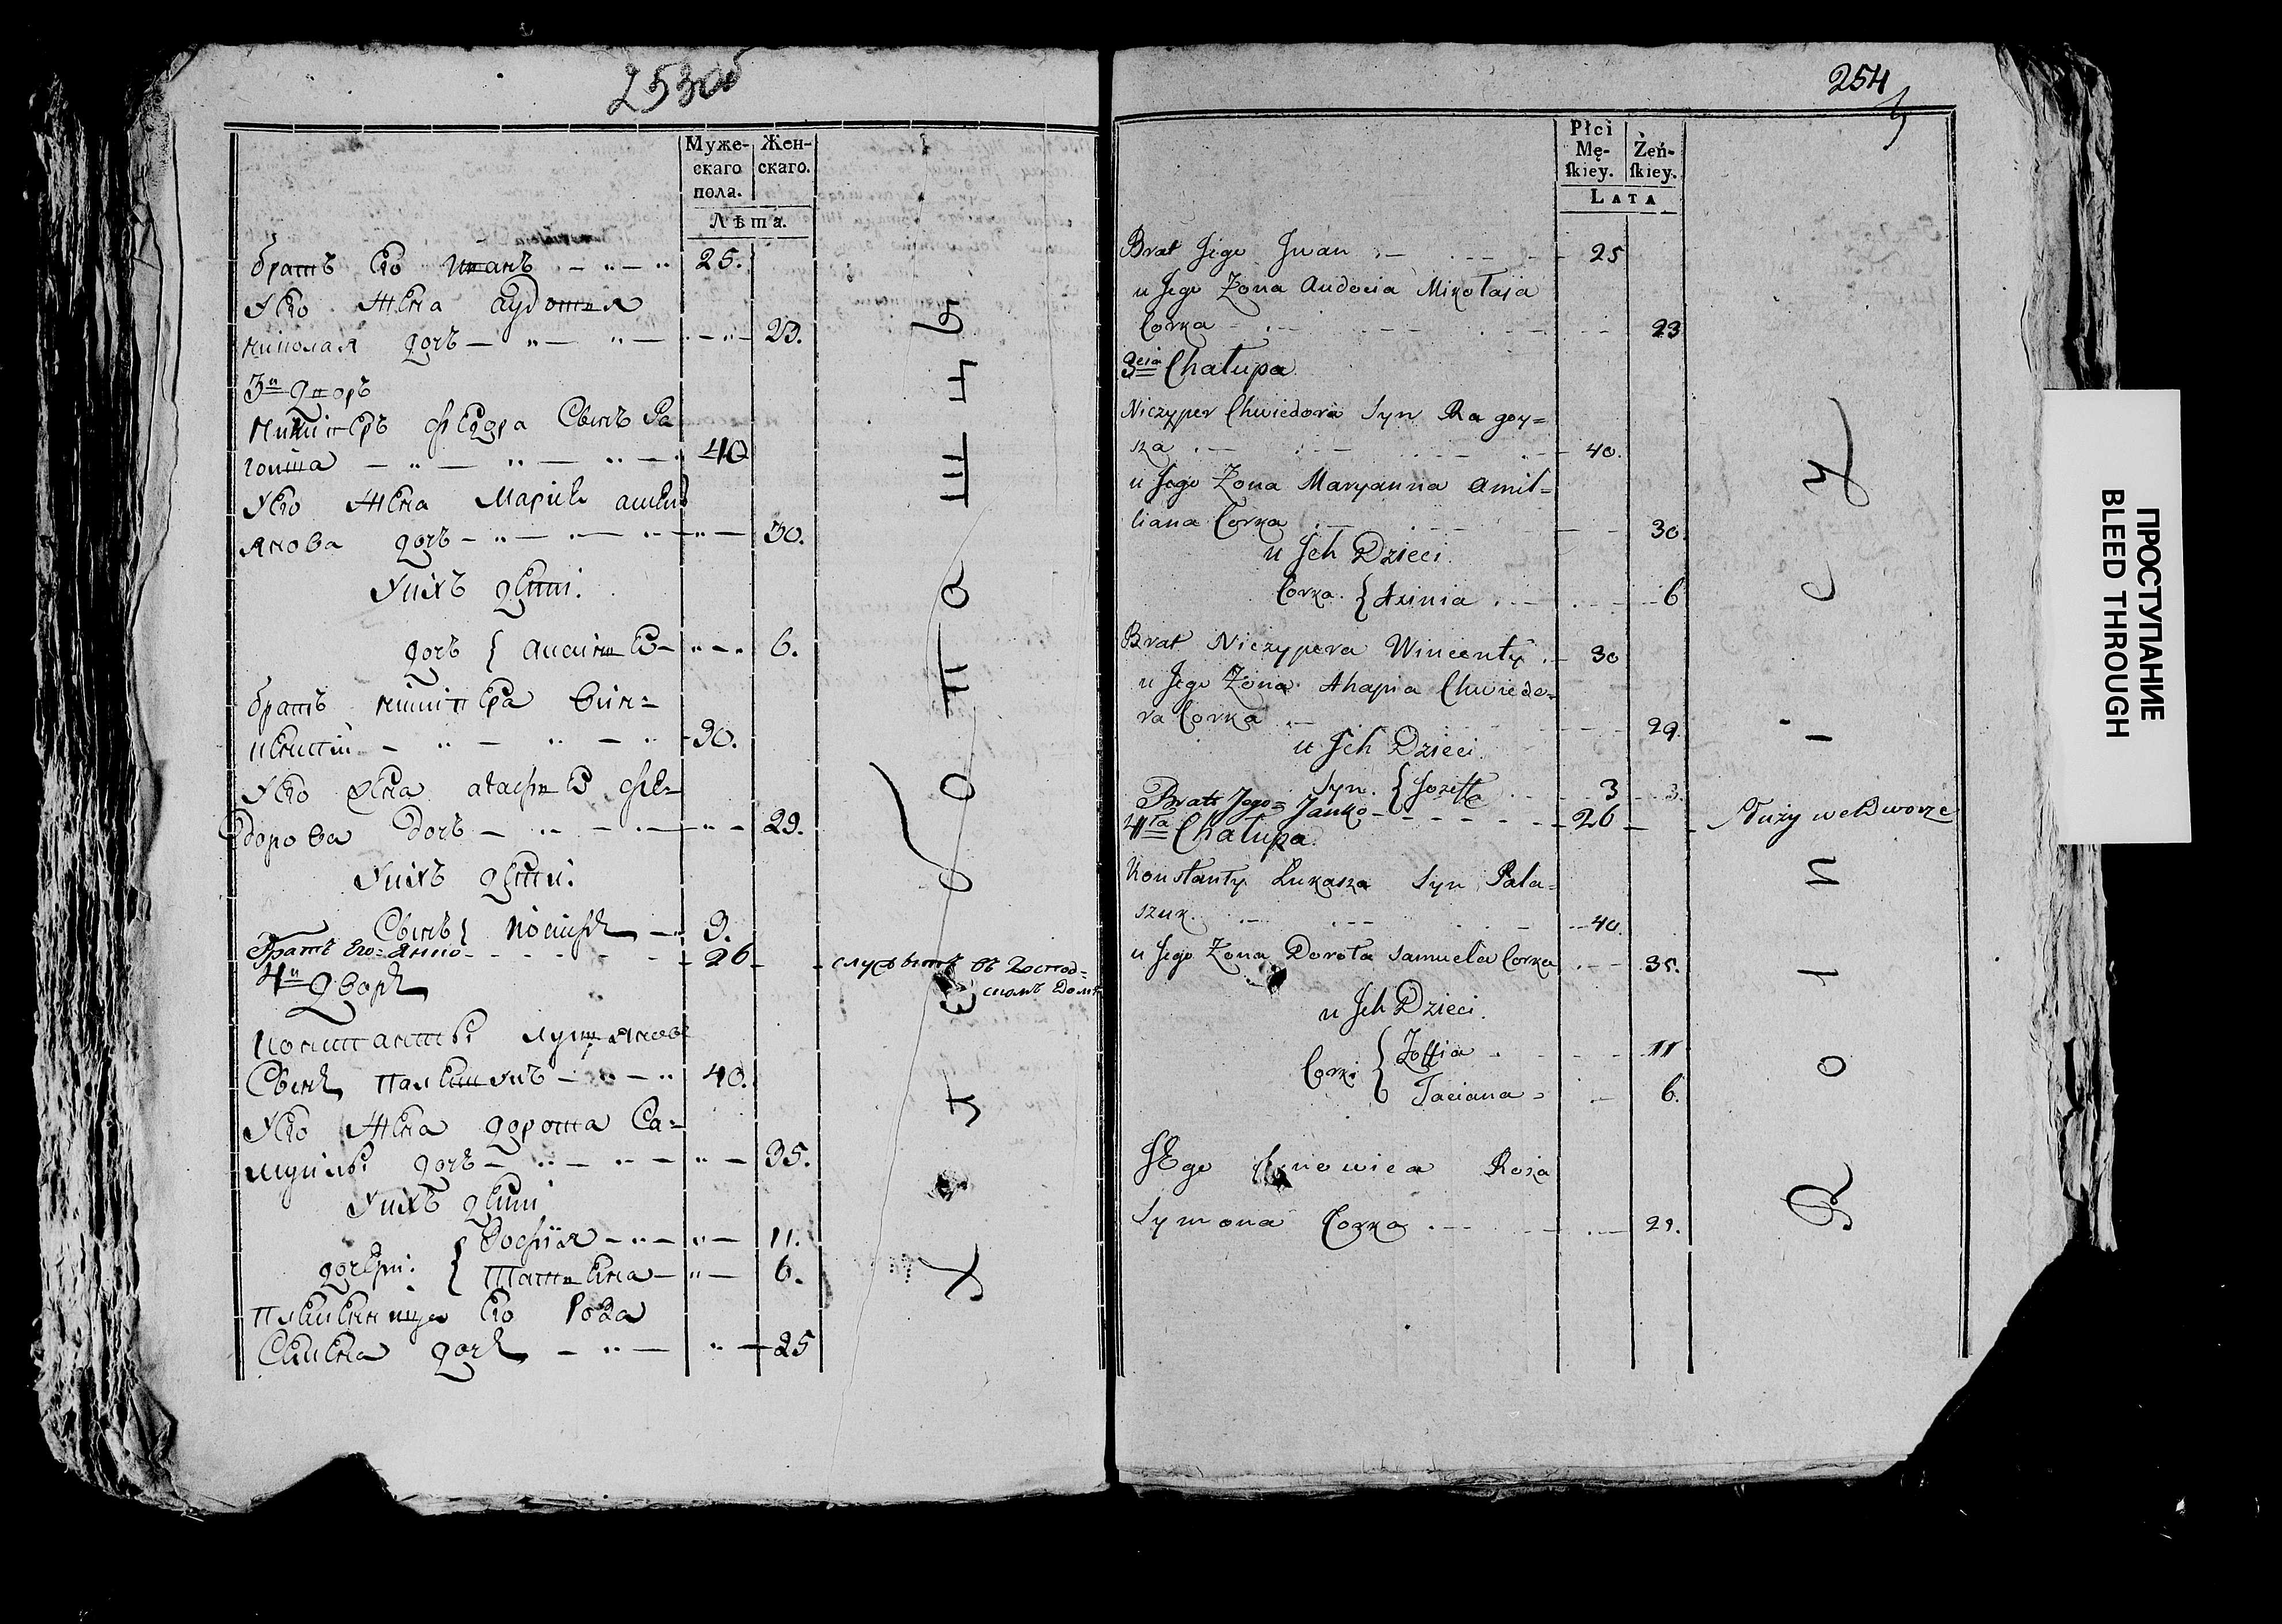 253об
Муже-
скаго
пола.
Жен-
скаго.
Лѣта.
братъ Его Иванъ 25.
У Его Жена Аудотия
николая дочь 23.
3й дворъ
Ничіперъ Федра Сынъ Ра
гоиша 40
У Его Жена Маріе
дочь 30.
У ихъ дети:
дочь { 6.
братъ ничипера Вин=
центій 30.
У Его Жена Агафие Фе=
дорова дочь 29.
У ихъ дети:
Сынъ { Иосифъ 3.
Братъ Его= Янко 26
служытъ въ Господ=
скомъ Домѣ
4й дворъ
Константы
Сынъ Палашукъ 40.
У Его Жена дорота Са=
муилы дочь 35.
У ихъ дети
дочери: { Зофіия 11.
Татиена 6.
Племенница Его Роза
Семена дочь 25
254
Płci
Mę-
ſkiey.
Żeń-
ſkiey.
LATA
Brat Jego Jwan 25
u Jego Zona Audocia Mikołaja
Corka 23
3cia Chałupa
Niczyper Chwiedora Syn Ragoy=
sza 40.
u Jego Zona Maryanna Amil=
liana Corka 30.
u Jch Dzieci.
Corka. { Axinia 6
Brat Niczypera Wincenty 30
u Jego Zona Ahapia Chwiedo=
ra Corka 29.
u Jch Dzieci.
Syn. { Jozeff 3 3.
Brat Jego= Janko 26 Służy we Dworze
4ta Chałupa.
Konstanty Łukasza Syn Pala=
szuk. 40.
u Jego Zona Dorota Samuela Corka 35.
u Jch Dzieci.
Corki { Zoffia 11
Taciana 6.
JEgo Synowica Roża
Symona Corka 21.
ПРОСТУПАНИЕ
BLEED THROUGH